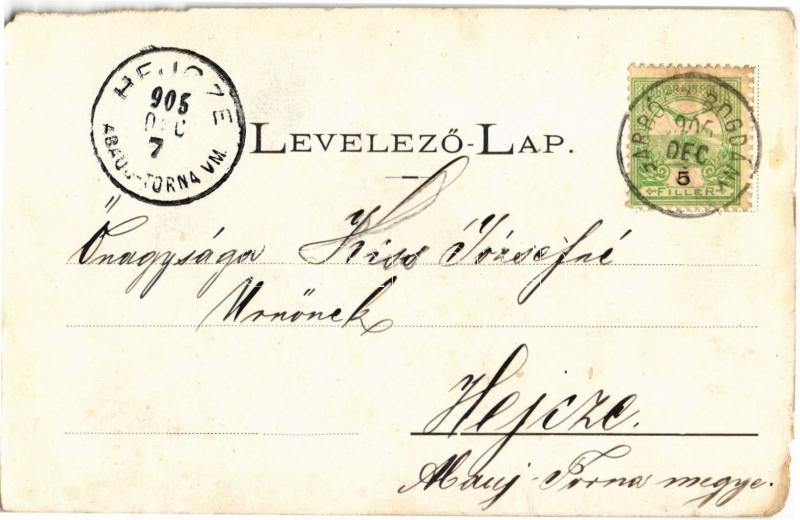 HEJCZE
905
DEC
7
ABAUJ-TORNA VM.
LEVELEZŐ-LAP.
BOGDÁNY
905
DEC
5
FILLER
Őnagysága Kiss Józsefné
Urnőnek
Hejcze.
Abauj-Torna megye.